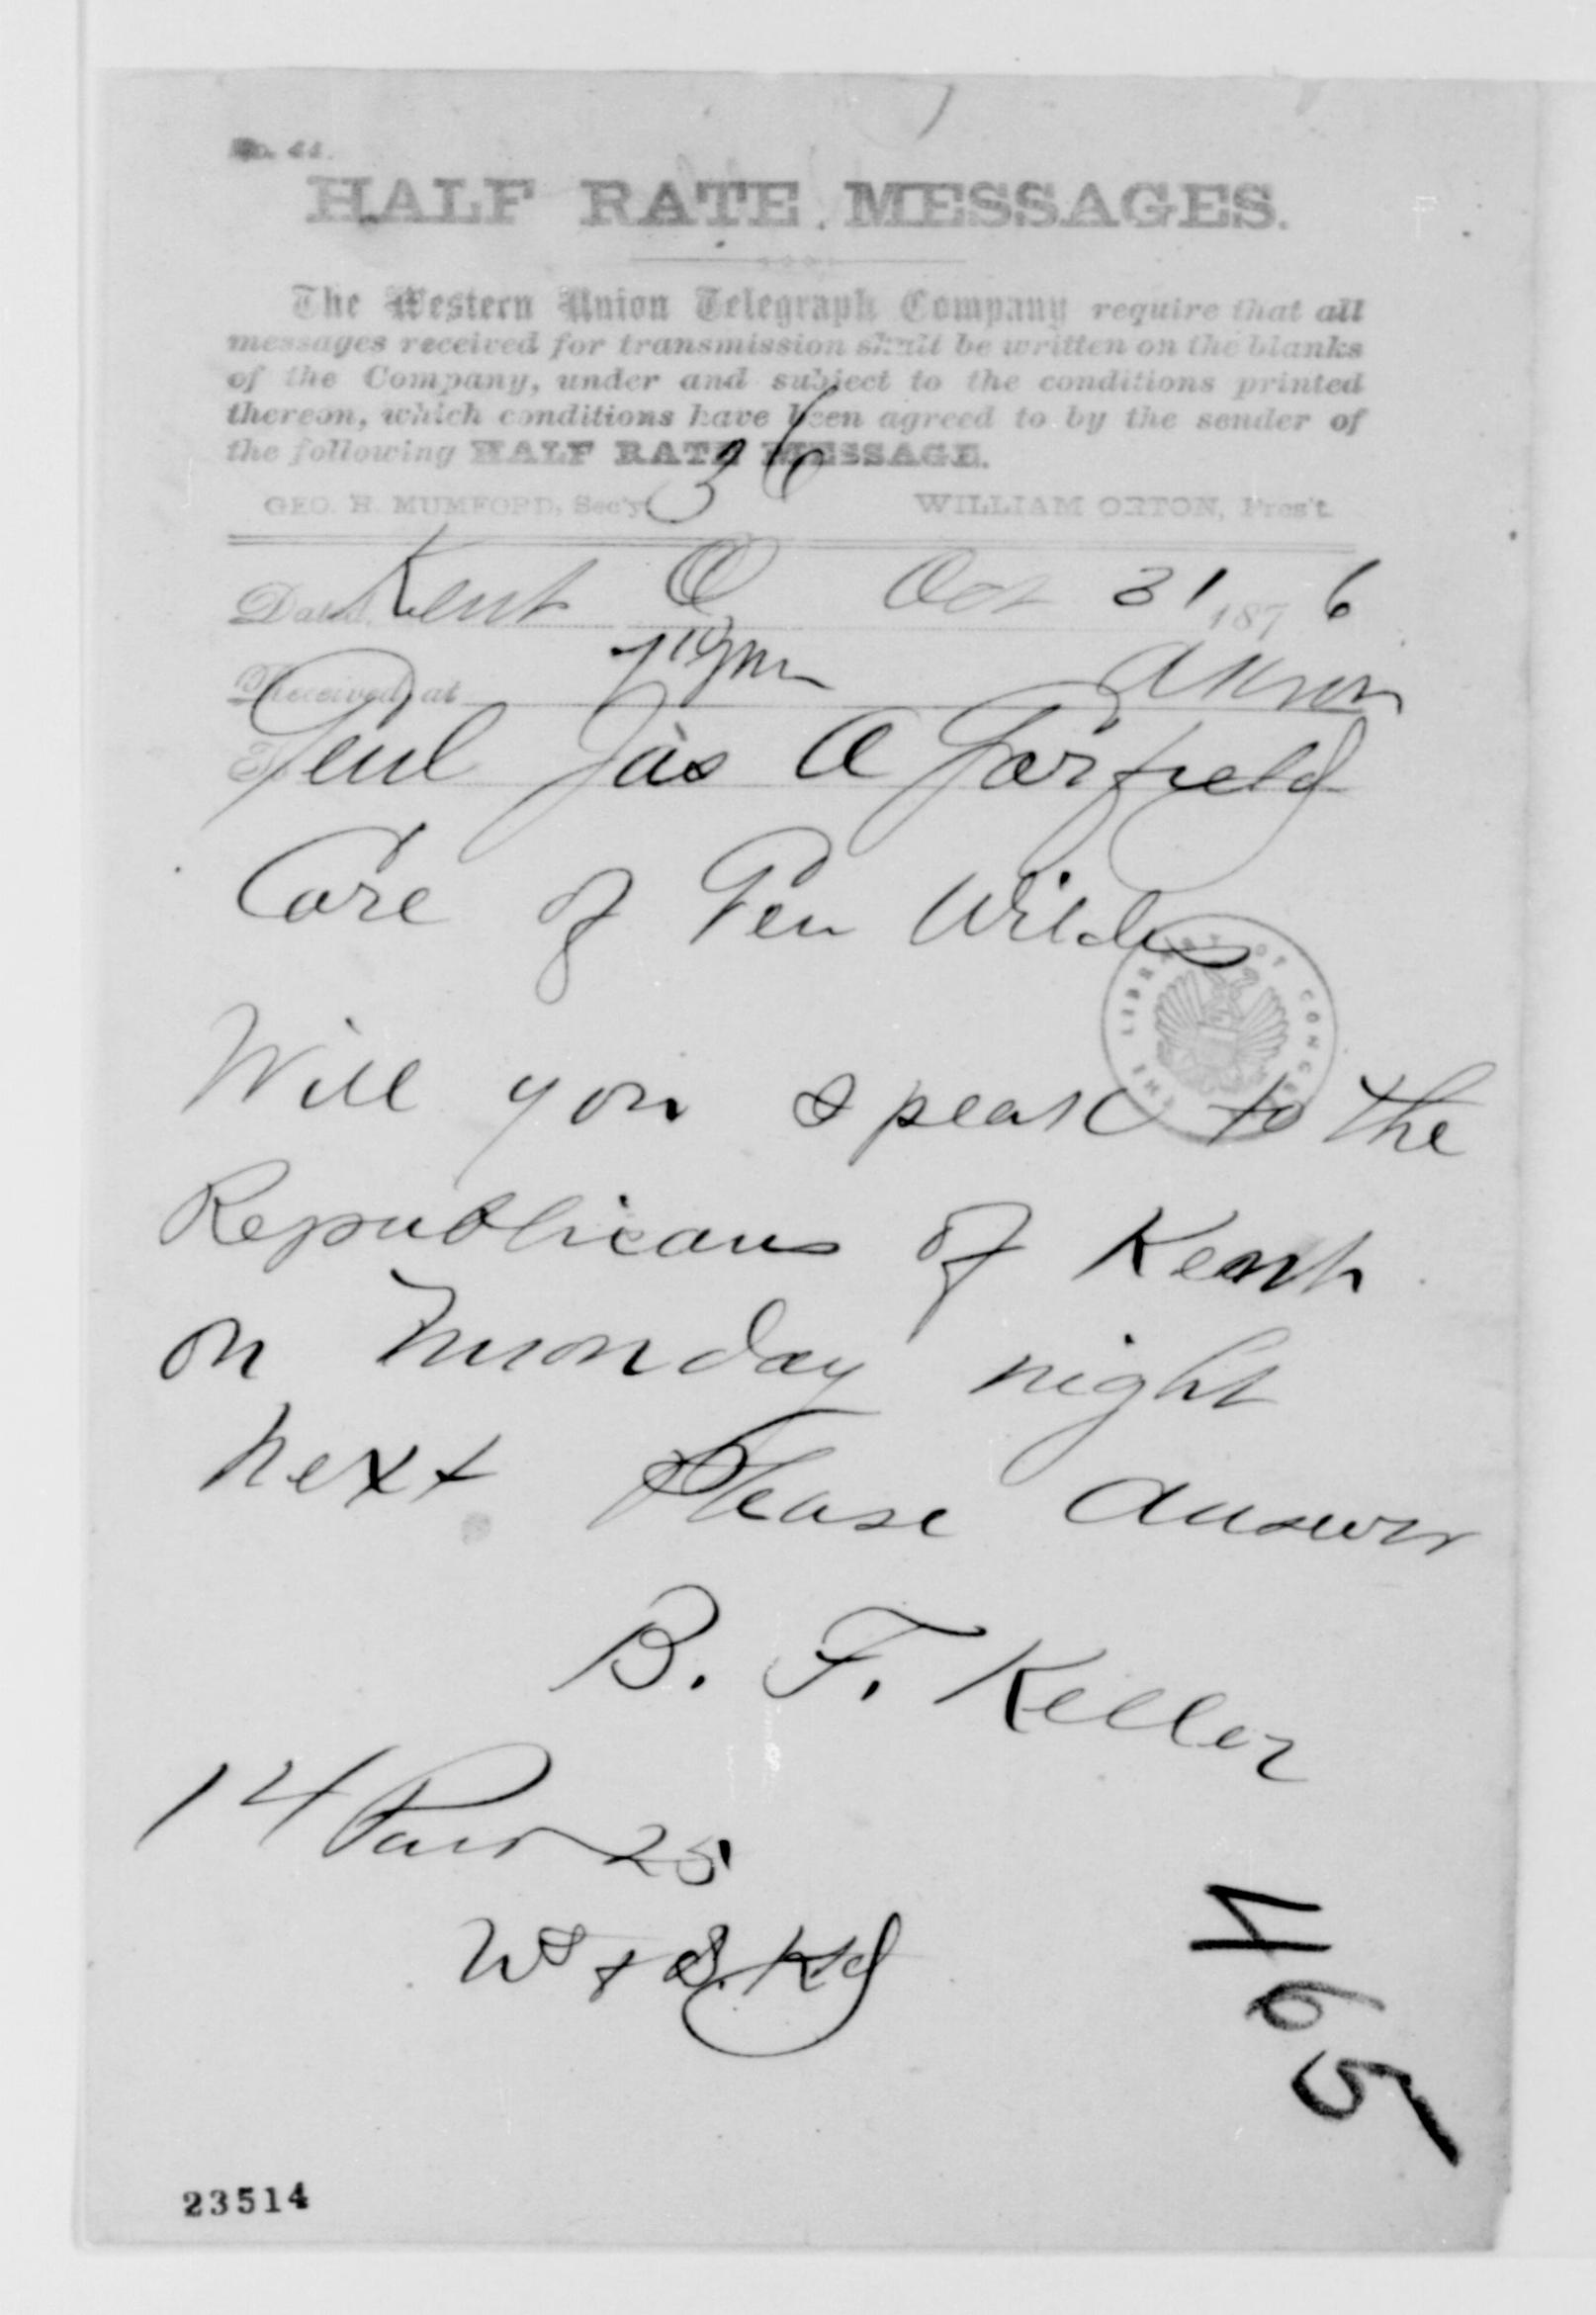 No. 44.
HALF RATE MESSAGES.
The Western Union Telegraph Company require that all
messages received for transmission shall be written on the blanks
of the Company, under and subject to the conditions printed
thereon, which conditions have been agreed to by the sender of
the following HALF RATE MESSAGE.
36
GEO. H. MUMFORD, Sec'y WILLIAM ORTON, Pres't.
Dated Kent O Oct 31 1876
Received at Akron
To Genl Jas A Garfield
Care of Gen
Will you speak to the
Republicans of Kent
on Monday night
next Please answer
B. F. Keller
14 Paid 25
465
THE LIBRARY OF CONGRESS
23514